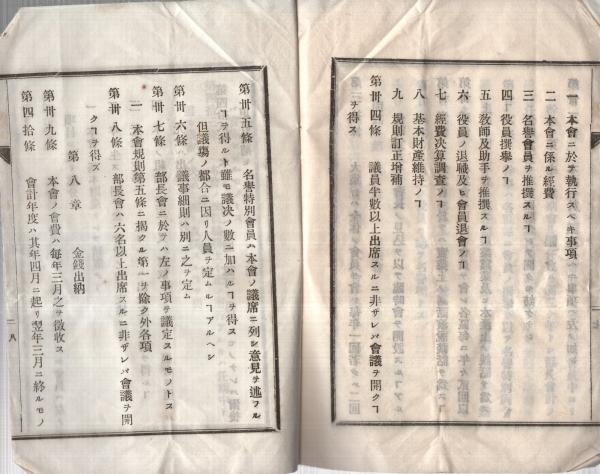 一 本會ニ於テ執行スベキ事項
二 本會ニ係ル經費
三 名譽會員ヲ推撰スルヿ
四 役員撰擧ノヿ
五 敎師及助手ヲ推撰スルヿ
六 役員ノ退職及ヒ會員退會ノヿ
七 經費決算調査ノヿ
八 基本財産維持ノヿ
九 規則訂正增補
第卅四條 議員半數以上出席スルニ非ザレバ會議ヲ開クヿ
ヲ得ス
第卅五條 名譽特別會員ハ本會ノ議席ニ列シ意見ヲ述フル
ヿヲ得ルト雖モ議決ノ數ニ加ハルヿヲ得ス
但議塲ノ都合ニ因リ人員ヲ定ムルヿアルヘシ
第卅六條 議事細則ハ別ニ之ヲ定ム
第卅七條 部長會ニ於テハ左ノ事項ヲ議定スルモノトス
一 本會規則第五條ニ揭クル第一ヲ除ク外各項
第卅八條 部長會ハ六名以上出席スルニ非ザレバ會議ヲ開
クヿヲ得ズ
第八章 金錢出納
第卅九條 本會ノ會費ハ每年三月之ヲ徵收ス
第四拾條 會計年度ハ其年四月ニ起リ翌年三月ニ終ルモノ
二八